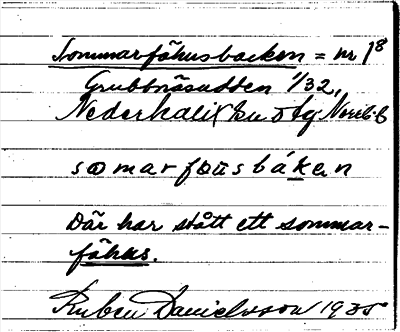 Sommarfähusbacken = nr 18
Grubbnäsudden 1/32,
Nederkalix sn o tg Norrb.
somarføusbákan
Där har stått ett sommar-
fähus.
Ruben Danielsson 1935